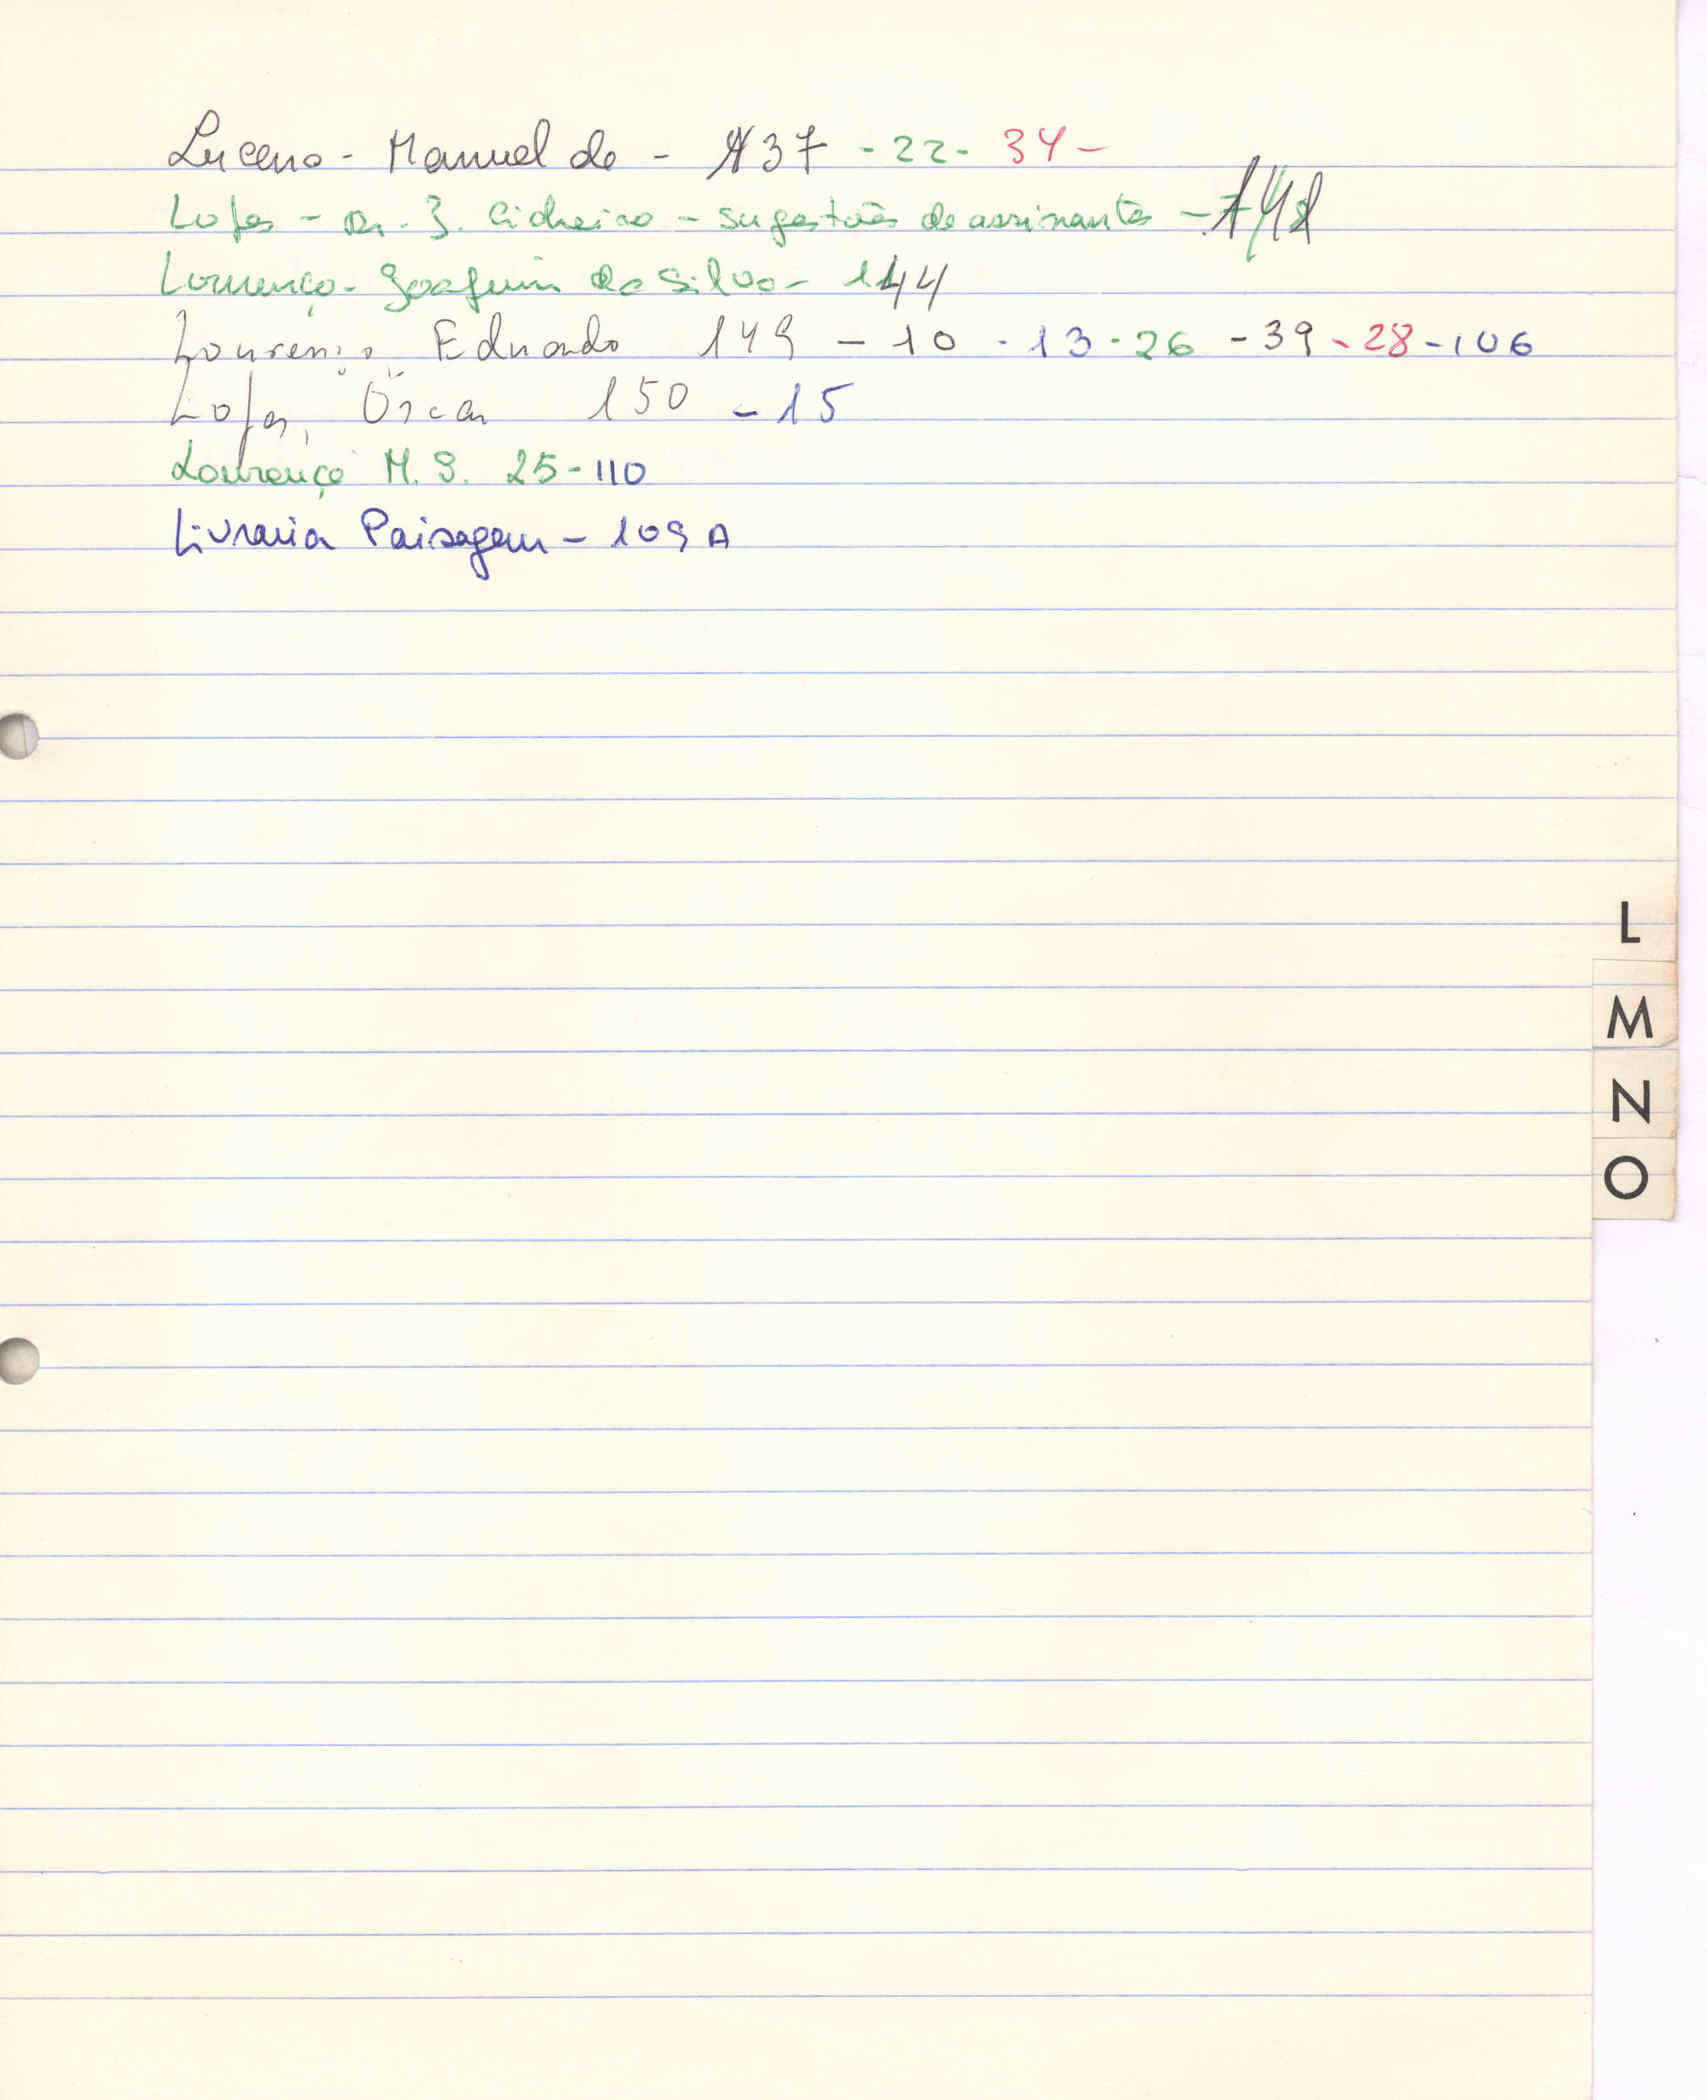 Lucena - Manuel de - 137 - 22 - 34 -
Lopes - Dr. J. - sugestões de assinantes -
Lourenço - Joaquim da Silva - 144
Lourenço, Eduardo 149 - 10 - 13 - 26 - 39 - 28 - 106
Lopes, Óscar 150 - 15
Lourenço M. S. 25 - 110
Livraria Paisagem - 109 A
L
M
N
O